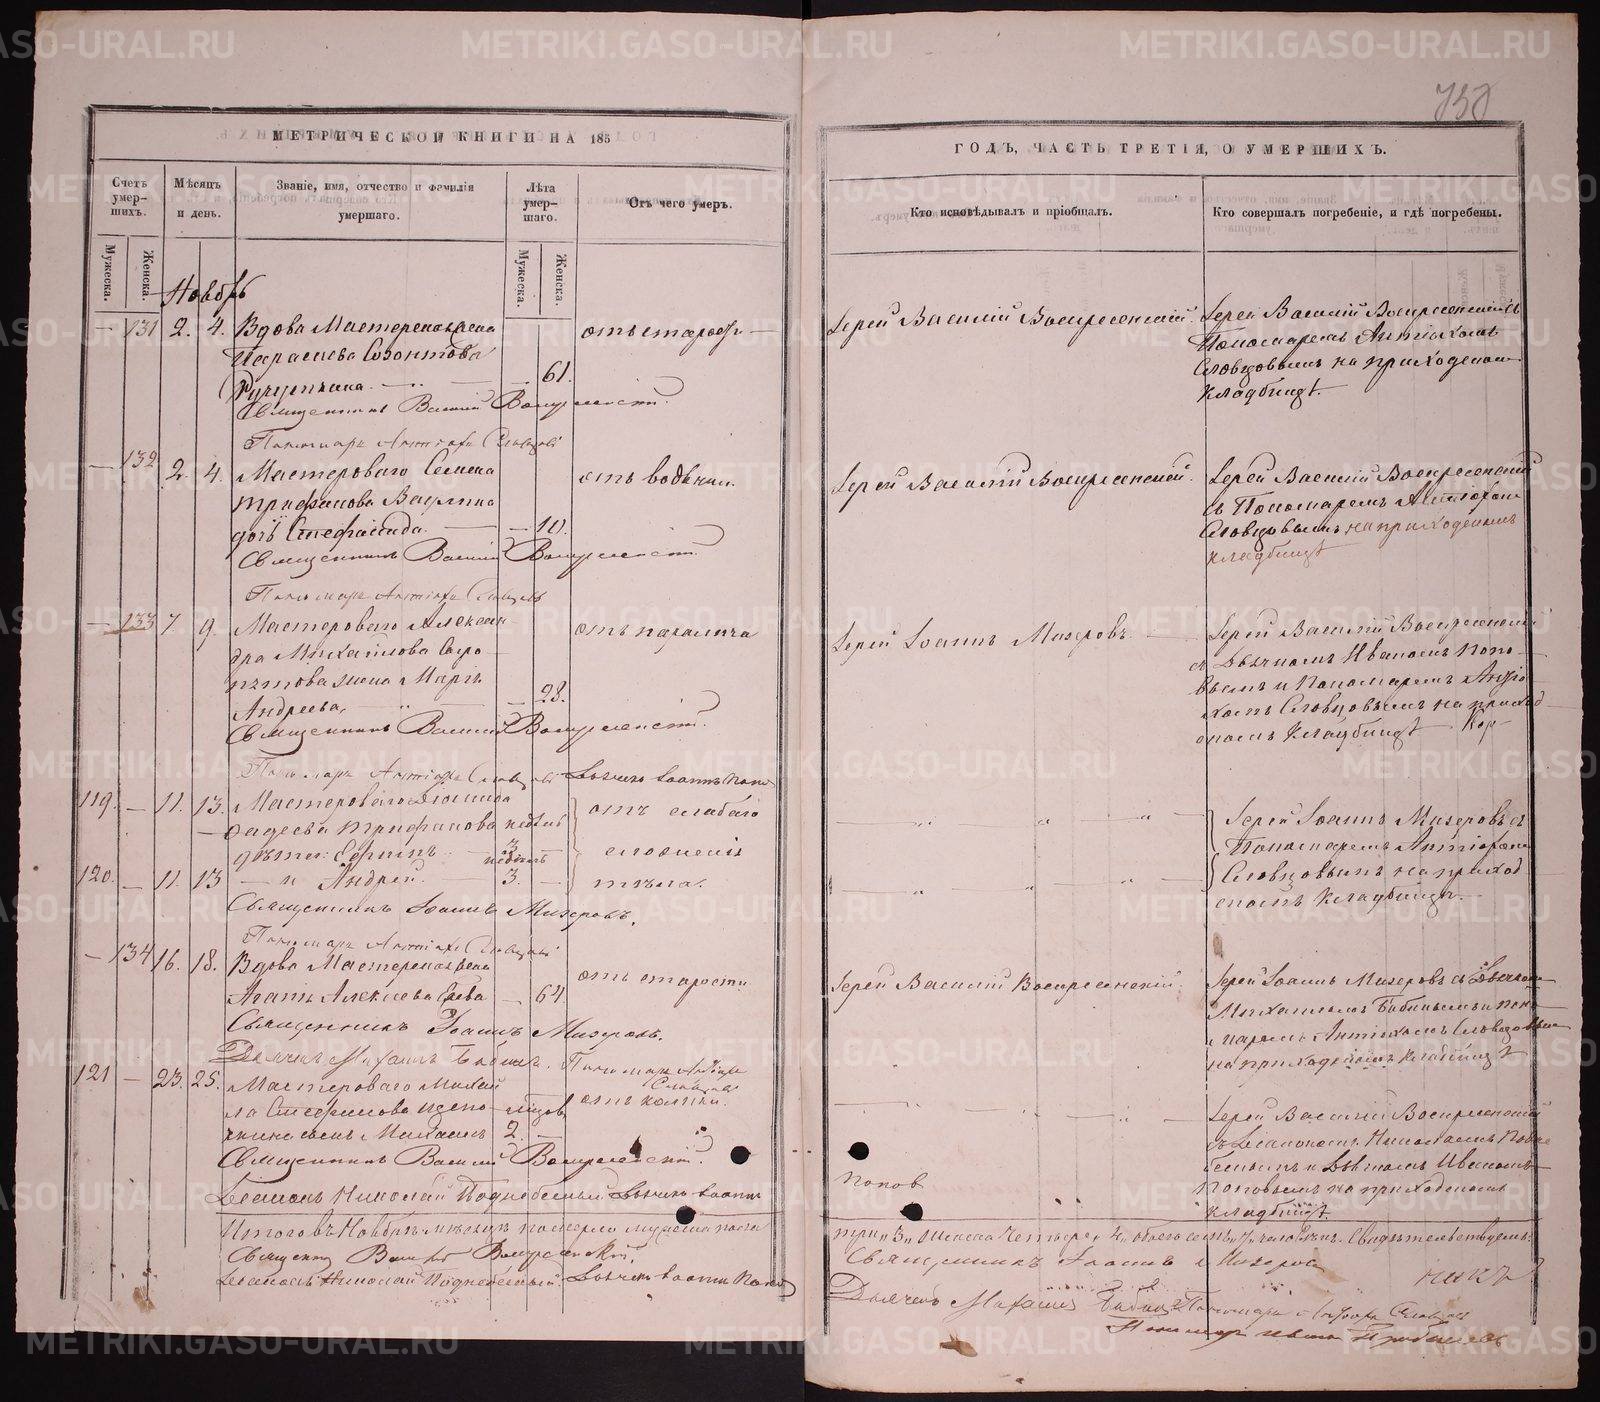 730
МЕТРИЧЕСКОЙ КНИГИ НА 185
Счетъ умер-шихъ.
Мѣсяцъ и день.
Званіе, имя, отчество и фамилія умершаго.
Лѣта умер-шаго.
Отъ чего умеръ.
Мужеска.
Женска.
Мужеска.
Женска.
Ноябрь
— 131 2. 4. Вдова Мастерская жена
отъ старости
Параскева Созонтова
61.
Священникъ Василій Воскресенскій.
Пономарь Антіохъ Словцовъ
— 132 2. 4. Мастероваго Семена
отъ водяной
Трифанова Ваулина
дочь Стефанида. — 10.
Священникъ Василій Воскресенскій
Пономарь Антіохъ Словцовъ
— 133 7. 9. Мастероваго Алексан
отъ паралича
дра Михайлова Саро
пятова жена Марія
Андреева — 28.
Священникъ Василій Воскресенскій.
Пономарь Антіохъ Словцовъ Дьячекъ Іоаннъ Попо
119. — 11. 13. Мастероваго
отъ слабаго
Фадеева Трифанова недѣль
дѣти: Сергій 3
сложенія
недѣль
120. — 11. 13 — и Андрей. — 3. —
тѣла.
Священникъ Іоаннъ Мизеровъ.
Пономарь Антіохъ Словцовъ
— 134 16. 18. Вдова Мастерская жена
отъ старости
Агафія Алексіева — 64
Священникъ Іоаннъ Мизеровъ.
Дьячекъ Михаилъ Бабинъ. Пономарь Антіохъ
Словцовъ
121 — 23. 25. Мастероваго Михаи
ла Стефанова
отъ колики.
сынъ Михаилъ 2. —
Священникъ Василій Воскресенскій.
Діаконъ Николай Поднебесный Дьячекъ Іоаннъ
Итого въ Ноябрѣ мѣсяцѣ померло мужеска пола
Священникъ Василій Воскресенскій
Діаконъ Николай Поднебесный. Дьячекъ Іоаннъ Попо
ГОДЪ, ЧАСТЬ ТРЕТІЯ, О УМЕРШИХЪ.
Кто исповѣдывалъ и пріобщалъ.
Кто совершалъ погребеніе, и гдѣ погребены.
Іерей Василій Воскресенскій.
Іерей Василій Воскресенскій съ
Пономаремъ Антіохомъ
Словцовымъ на приходскомъ
кладбищѣ.
Іерей Василій Воскресенскій.
Іерей Василій Воскресенскій
съ Пономаремъ Антіохомъ
Словцовымъ на приходскомъ
кладбищѣ
Іерей Іоаннъ Мизеровъ
Іерей Василій Воскресенскій
съ Дьячкомъ Иваномъ Попо
вымъ и Пономаремъ Антіо
хомъ Словцовымъ на приход
скомъ кладбищѣ
Іерей Іоаннъ Мизеровъ съ
Пономаремъ Антіохомъ
Словцовымъ на приход
скомъ кладбищѣ.
Іерей Василій Воскресенскій.
Іерей Іоаннъ Мизеровъ съ Дьячкомъ
Михаиломъ Бабинымъ и поно
маремъ Антіохомъ Словцовымъ
на приходскомъ кладбищѣ
Іерей Василій Воскресенскій
съ Діакономъ Николаемъ Подне
беснымъ и Дьячкомъ Иваномъ
Поповымъ на приходскомъ
кладбищѣ.
Попов
три „3„ женска четыре „4„ обоего семь „7„ человѣкъ. Свидѣтельствуемъ:
Священникъ Іоаннъ Мизеровъ
Дьячекъ Михаилъ Бабинъ Пономарь Антіохъ Словцовъ